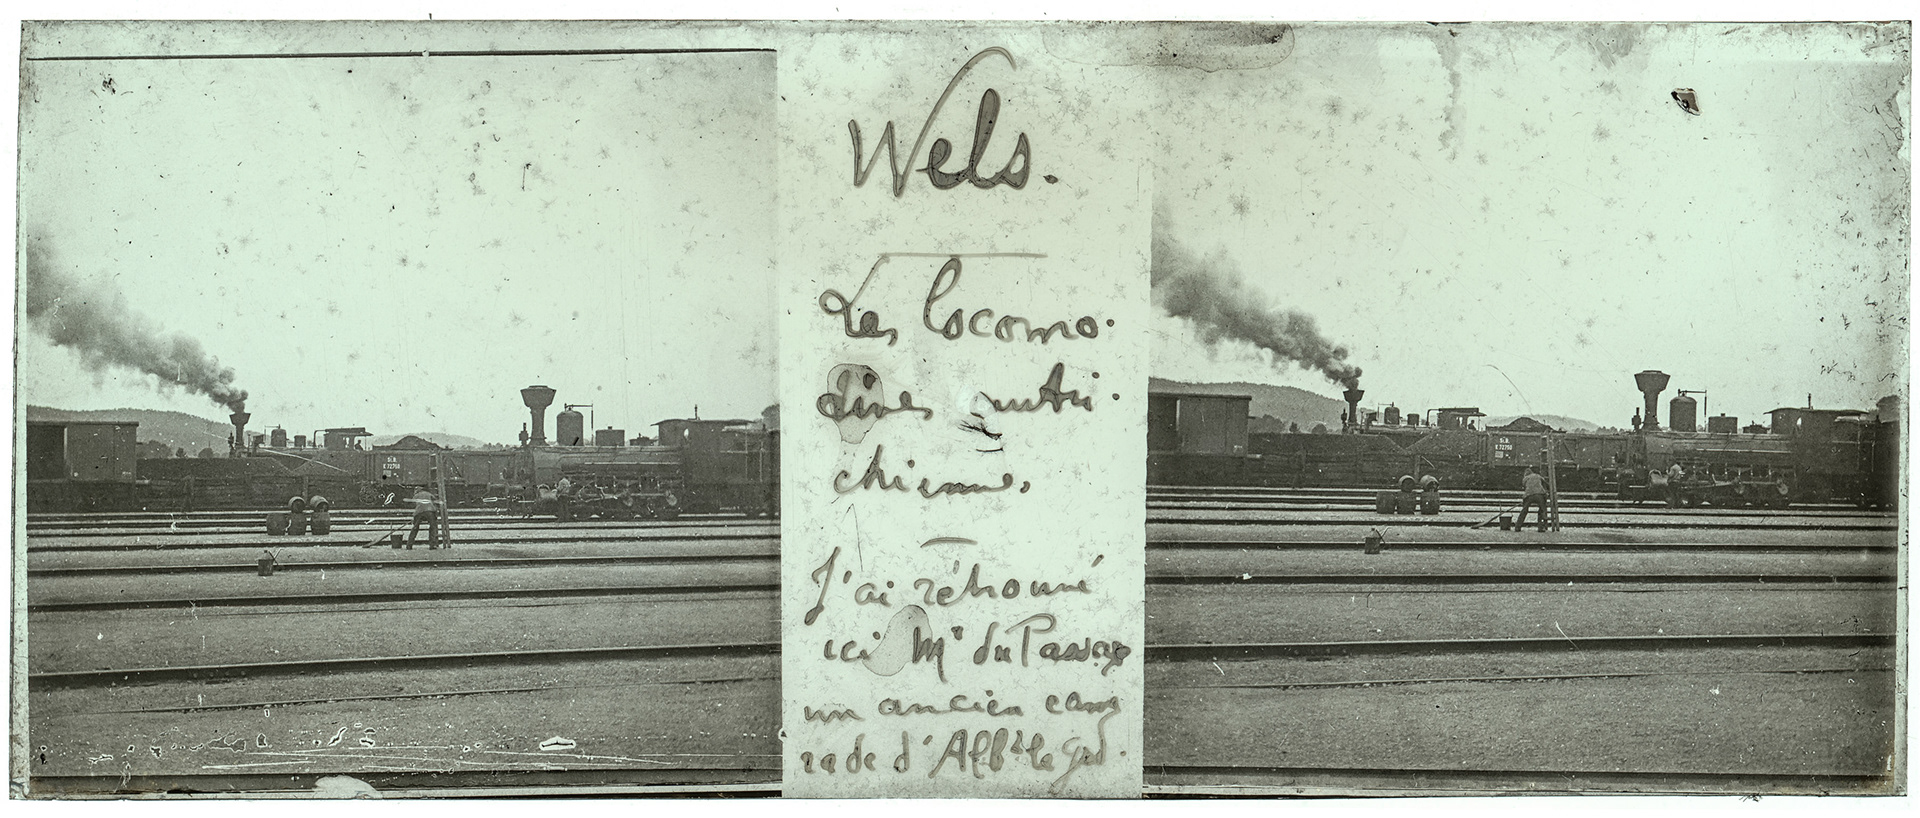 Wels.
Les locomo-
tives autri-
chiennes.
J'ai retrouvé
ici Mr du Passage
un ancien cama
rade d'Albt le Gd.
St.B.
K 72760